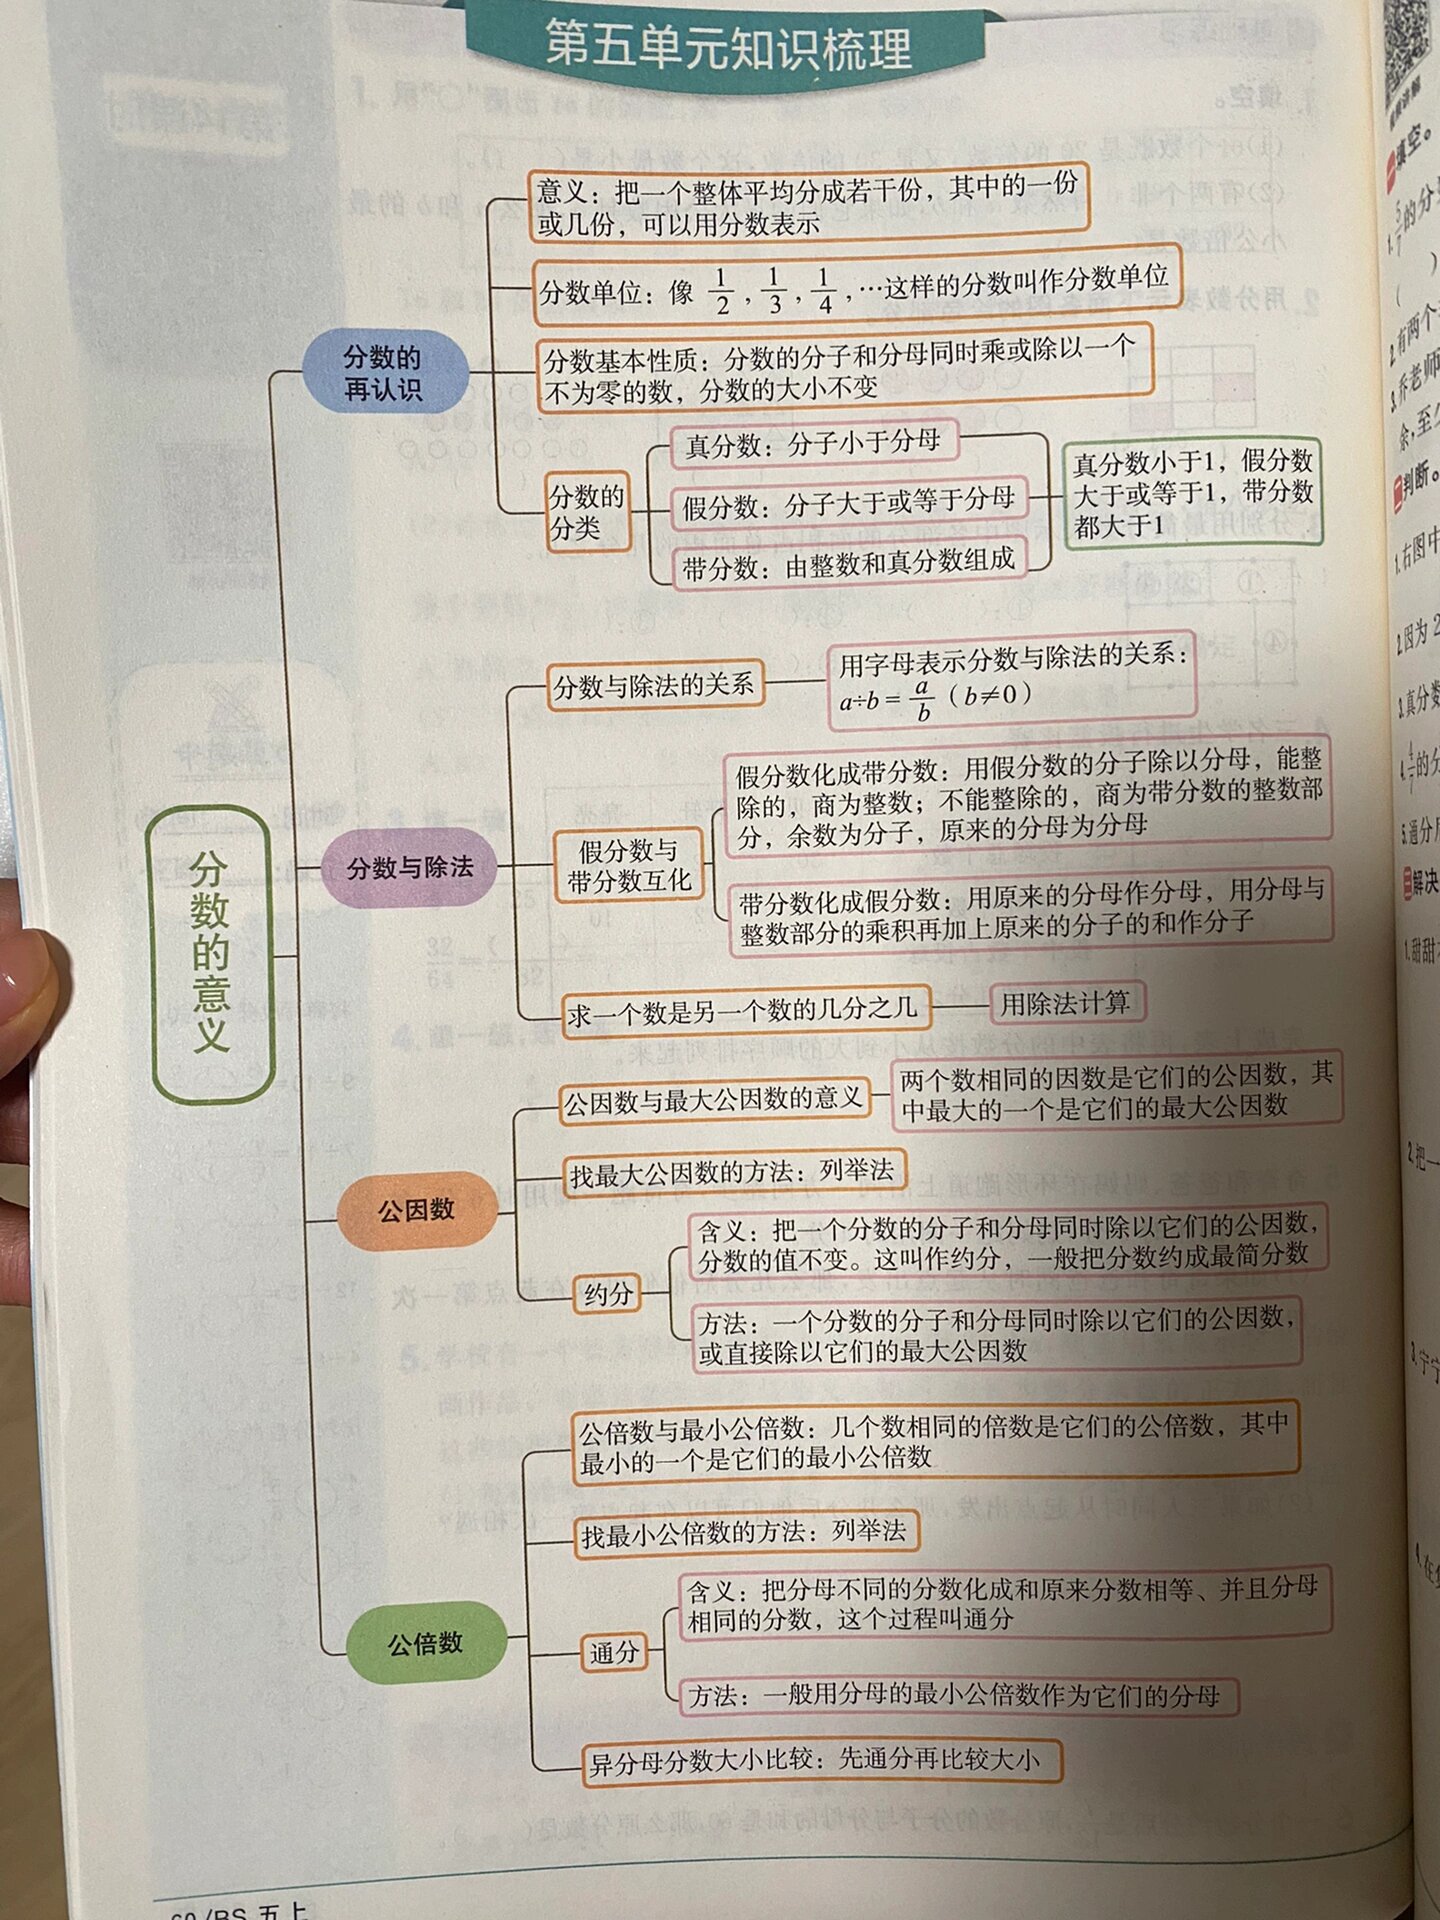 第五单元知识梳理
分数的意义
分数的
再认识
意义：把一个整体平均分成若干份，其中的一份
或几份，可以用分数表示
分数单位：像 1/2，1/3，1/4，…这样的分数叫作分数单位
分数基本性质：分数的分子和分母同时乘或除以一个
不为零的数，分数的大小不变
分数的
分类
真分数：分子小于分母
假分数：分子大于或等于分母
带分数：由整数和真分数组成
真分数小于1，假分数
大于或等于1，带分数
都大于1
分数与除法
分数与除法的关系
用字母表示分数与除法的关系：
a÷b = a/b（b≠0）
假分数与
带分数互化
假分数化成带分数：用假分数的分子除以分母，能整
除的，商为整数；不能整除的，商为带分数的整数部
分，余数为分子，原来的分母为分母
带分数化成假分数：用原来的分母作分母，用分母与
整数部分的乘积再加上原来的分子的和作分子
求一个数是另一个数的几分之几
用除法计算
公因数
公因数与最大公因数的意义
两个数相同的因数是它们的公因数，其
中最大的一个是它们的最大公因数
找最大公因数的方法：列举法
约分
含义：把一个分数的分子和分母同时除以它们的公因数，
分数的值不变。这叫作约分，一般把分数约成最简分数
方法：一个分数的分子和分母同时除以它们的公因数，
或直接除以它们的最大公因数
公倍数
公倍数与最小公倍数：几个数相同的倍数是它们的公倍数，其中
最小的一个是它们的最小公倍数
找最小公倍数的方法：列举法
通分
含义：把分母不同的分数化成和原来分数相等、并且分母
相同的分数，这个过程叫通分
方法：一般用分母的最小公倍数作为它们的分母
异分母分数大小比较：先通分再比较大小
/BS 五上
一填空。
1. 5/7的分
2.有两个
3.乔老师
余,至少
二判断。
1.右图中
2.因为2
3.真分数
4. 的分
5.通分
三解决
1.甜甜
2.把一
3.宁宁